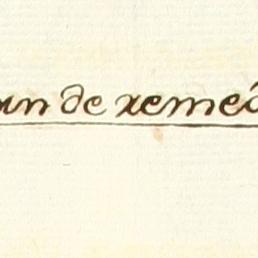 an de remed